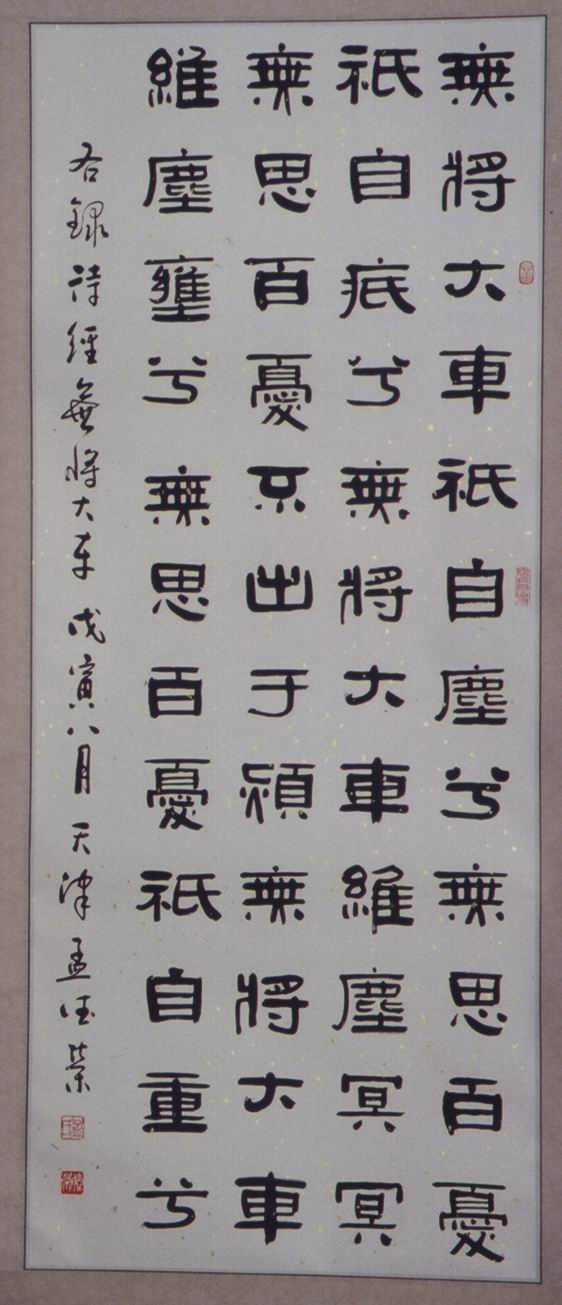 無將大車祇自塵兮無思百憂
祇自疧兮無將大車維塵冥冥
無思百憂不出于熲無將大車
維塵壅兮無思百憂祇自重兮
右錄詩經無將大車戊寅八月天津孟德榮